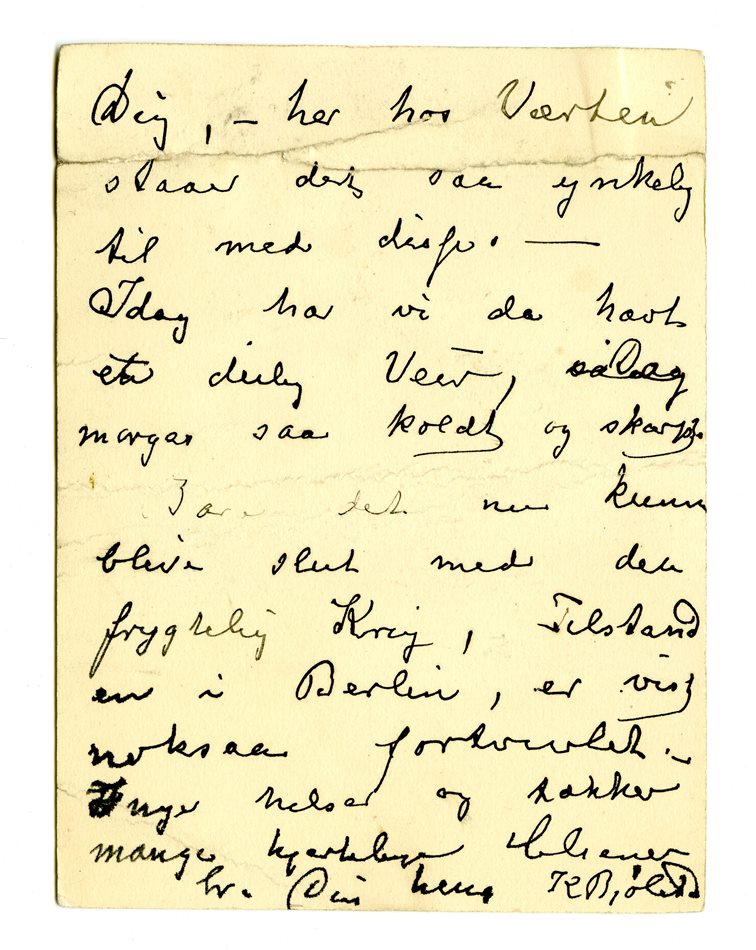 Dig, – her hos Værten
staaer det saa ynkelig
til med disse. —
Idag har vi da havt
et deilig Veir,
morgen saa koldt og skarpt.
Bare det nu kunne
blive slut med den
frygtelig Krig, Tilstand
en i Berlin, er vist
noksaa fortvivlet. –
Inger hilser og takker
mange hjertelige Hilsener
fra Din hens K Bjølstad